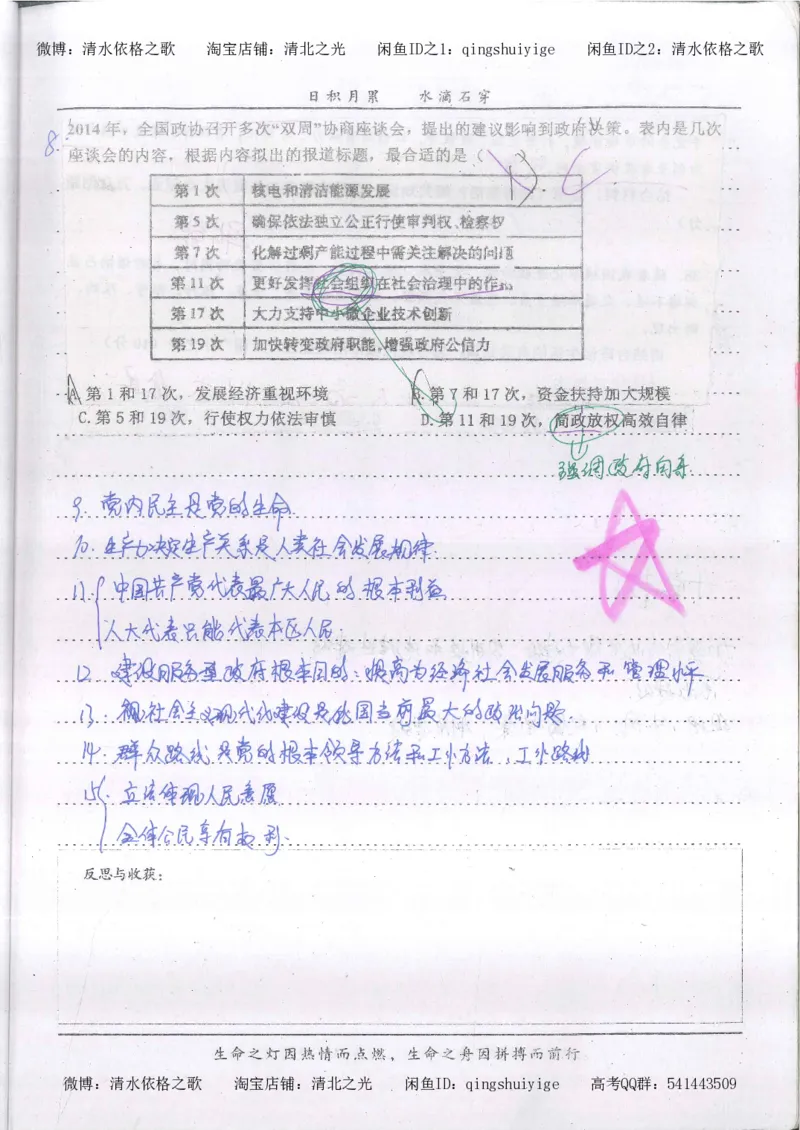 微博：清水依格之歌 淘宝店铺：清北之光 闲鱼ID之1：qingshuiyige 闲鱼ID之2：清水依格之歌
日积月累 水滴石穿
8. 2014年，全国政协召开多次“双周”协商座谈会，提出的建议影响到政府决策。表内是几次
座谈会的内容，根据内容拟出的报道标题，最合适的是（
第1次 核电和清洁能源发展
第5次 确保依法独立公正行使审判权、检察权
第7次 化解过剩产能过程中需关注解决的问题
第11次 更好发挥社会组织在社会治理中的作用
第17次 大力支持中小微企业技术创新
第19次 加快转变政府职能，增强政府公信力
A.第1和17次，发展经济重视环境 B.第7和17次，资金扶持加大规模
C.第5和19次，行使权力依法审慎 D.第11和19次，简政放权高效自律
强调政府自身
9. 党内民主是党的生命
10. 生产力决定生产关系是人类社会发展规律.
11. 中国共产党代表最广大人民的根本利益
人大代表只能代表本区人民.
12. 建设服务型政府根本目的：提高为经济社会发展服务和管理水平
13. 社会主义现代化建设是我国当前最大的政治问题.
14. 群众路线是党的根本领导方法和工作方法，工作路线
15. 立法体现人民意愿
全体公民享有权利.
反思与收获：
生命之灯因热情而点燃，生命之舟因拼搏而前行
微博：清水依格之歌 淘宝店铺：清北之光 闲鱼ID：qingshuiyige 高考QQ群：541443509